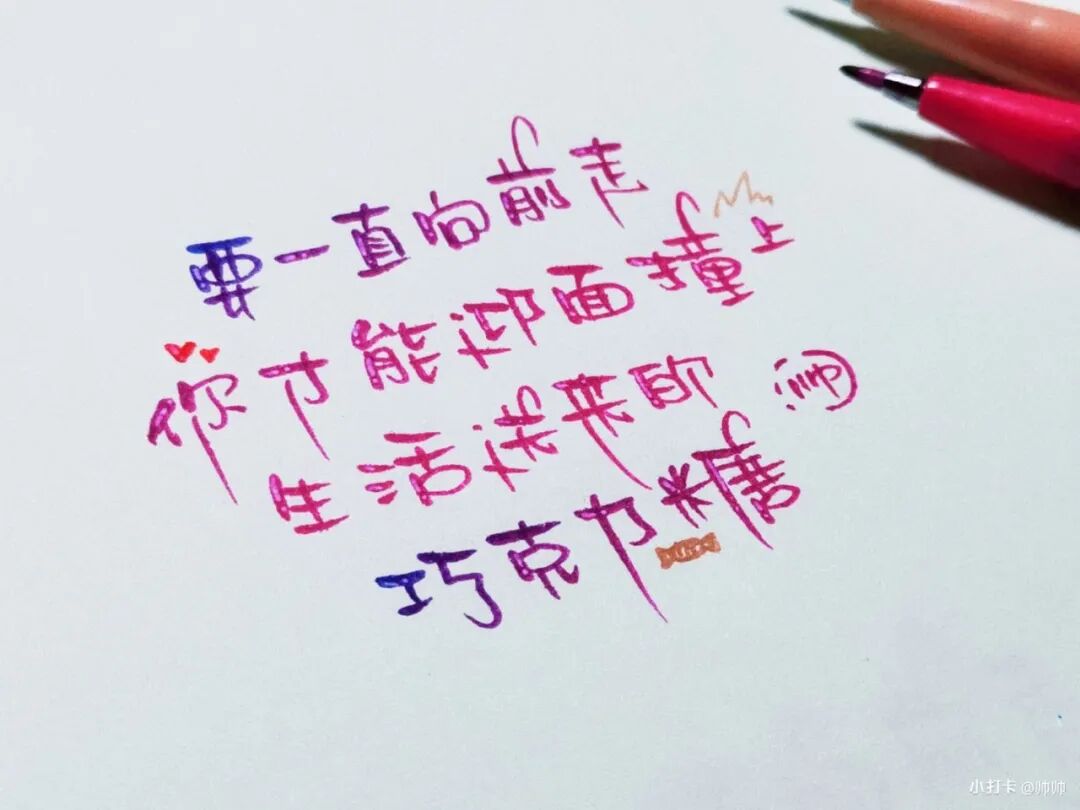 要一直向前走
你才能迎面撞上
生活送来的
巧克力糖
小打卡 @帅帅